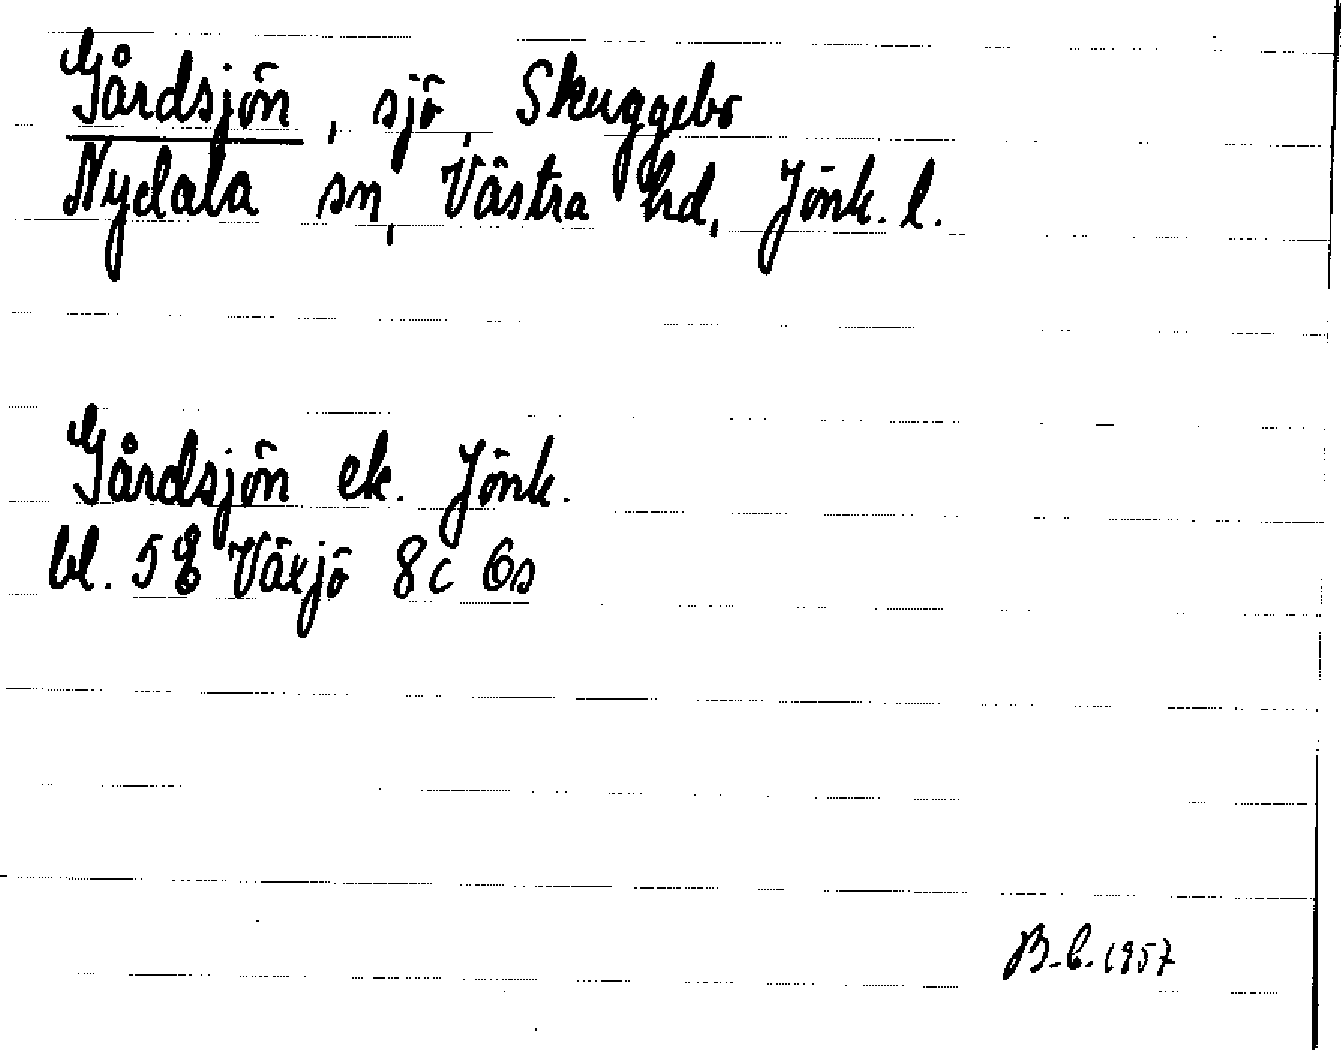 Gårdsjön, sjö, Skuggebo
Nydala sn, Västra hd, Jönk. l.
Gårdsjön ek. Jönk.
bl. 58 Växjö 8c 6s
B.b. 1957